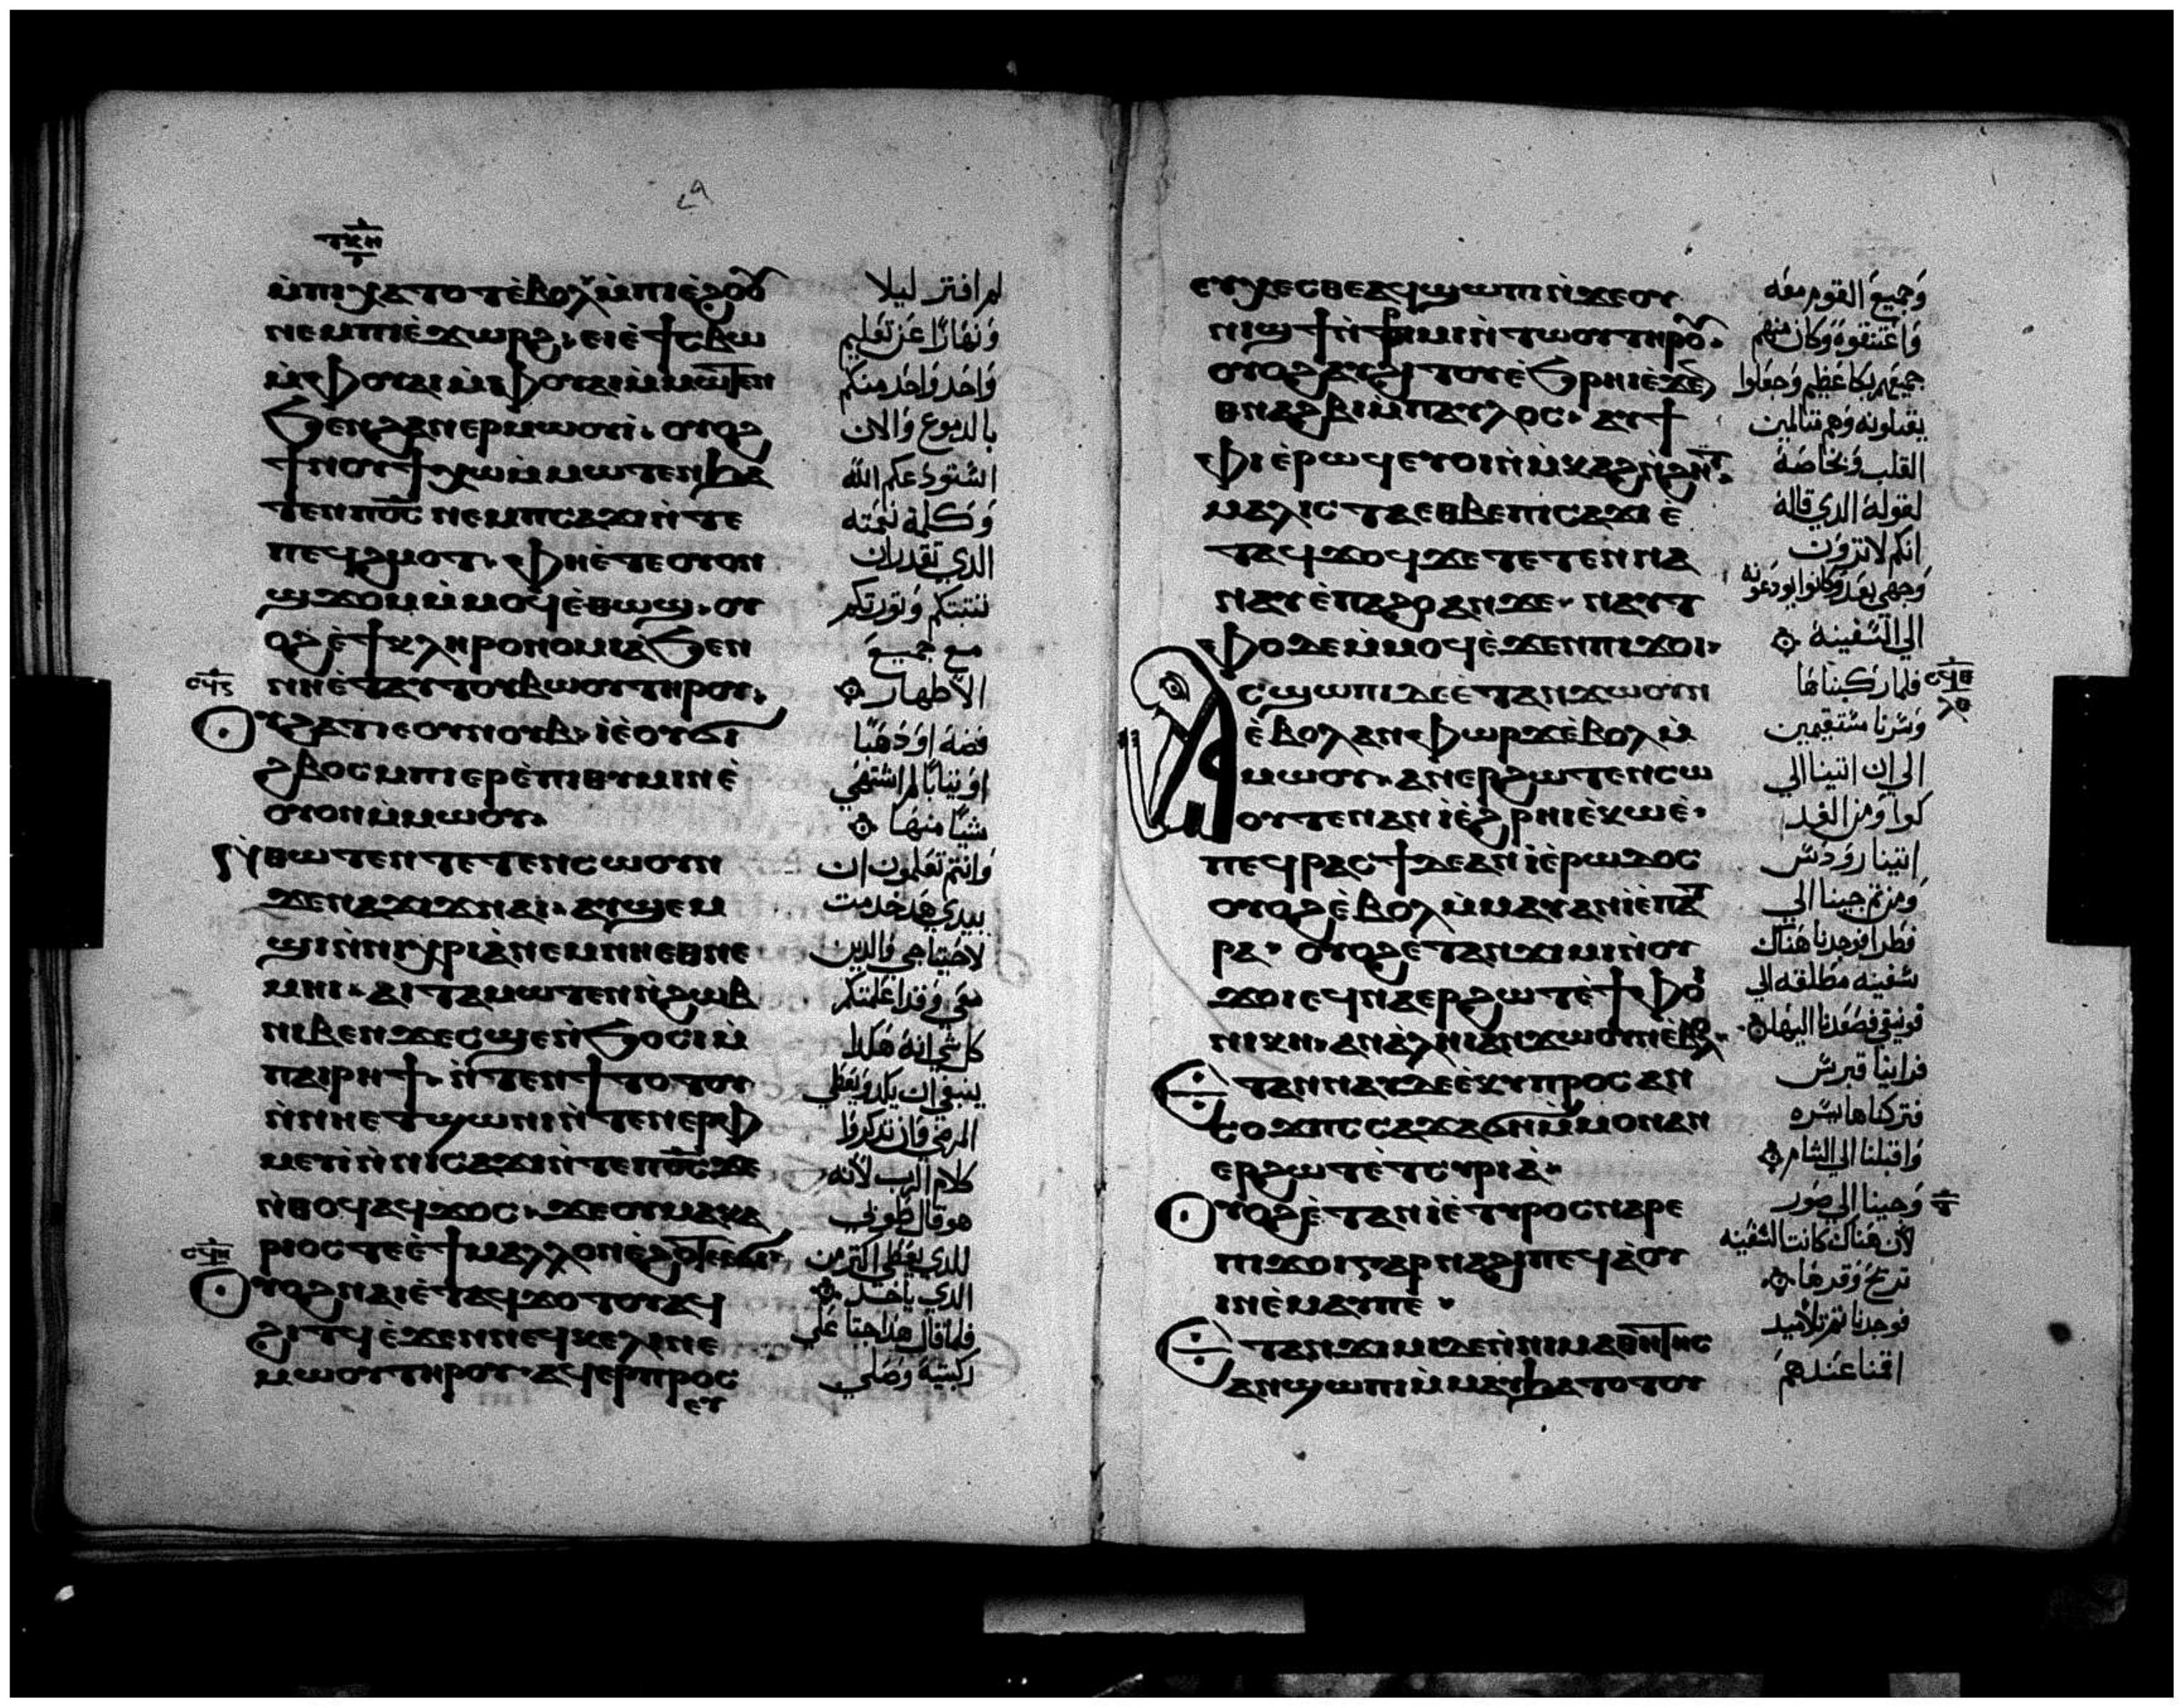 ⲧⲕⲏ
ⲙ̀ⲡⲓⲭⲁⲧⲟⲧ ⲉ̀ⲃⲟⲗ ⲙ̀ⲡⲓⲉ̀ϩⲟⲟⲩ
ⲛⲉⲙ ⲡⲓⲉ̀ϫⲱⲣϩ. ⲉⲓⲉ̀ϯⲥⲃⲱ
ⲙ̀ⲫⲟⲩⲁⲓ ⲙ̀ⲫⲟⲩⲁⲓ ⲙ̀ⲙⲱⲧⲉⲛ
ϧⲉⲛ ϩⲁⲛⲉⲣⲙⲱⲟⲩⲓ̀. ⲟⲩⲟϩ
ϯⲛⲟⲩ ϯⲭⲱ ⲙ̀ⲙⲱⲧⲉⲛ ϧⲁ
ⲧⲉⲛ ⲡⲟ̅ⲥ̅ ⲛⲉⲙ ⲡⲥⲁϫⲓ ⲛ̀ⲧⲉ
ⲡⲉϥϩⲙⲟⲧ. ⲫⲏⲉ̀ⲧⲉ ⲟⲩⲟⲛ
ϣϫⲟⲙ ⲙ̀ⲙⲟϥ ⲉ̀ⲑⲱϣ. ⲟⲩ
ⲟϩ ⲉ̀ϯⲕⲗⲏⲣⲟⲛⲟⲙⲓⲁ̀ ϧⲉⲛ
ⲛⲏⲉ̀ⲧⲁⲩⲧⲟⲩⲃⲱⲟⲩ ⲧⲏⲣⲟⲩ.
ⲟⲩϩⲁⲧ ⲓⲉ ⲟⲩⲛⲟⲩⲃ. ⲓⲉ̀ ⲟⲩϭⲓ
ϩⲃⲟⲥ ⲙⲡⲓⲉⲣⲉ̀ⲡⲓⲑⲩⲙⲓⲛ ⲉ̀
ⲟⲩⲟⲛ ⲙ̀ⲙⲱⲟⲩ.
ⲛ̀ⲑⲱⲧⲉⲛ ⲧⲉⲧⲉⲛⲥⲱⲟⲩⲛ
ϫⲉ ⲛⲁϫⲓϫ ⲛⲁⲓ. ⲁⲩϣⲉⲙ
ϣⲓ ⲛ̀ⲛⲓⲭⲣⲓⲁ̀ ⲛⲉⲙ ⲛⲏⲉⲑⲛⲉ
ⲙⲏⲓ. ⲁⲓⲧⲁⲙⲱⲧⲉⲛ ⲛ̀ϩⲱⲃ
ⲛⲓⲃⲉⲛ ϫⲉ ⲥϣⲉ ⲛ̀ϧⲟⲥⲓ ⲙ̀
ⲡⲁⲓⲣⲏϯ. ⲛ̀ⲧⲉⲛϯⲧⲟⲧⲟⲩ
ⲛ̀ⲛⲏⲉⲧϣⲱⲛⲓ ⲛ̀ⲧⲉⲛⲉⲣⲫ
ⲙⲉⲩⲓ̀ ⲛ̀ⲛⲓⲥⲁϫⲓ ⲛ̀ⲧⲉ ⲡⲟ̅ⲥ̅ ϫⲉ
ⲛ̀ⲑⲟϥ ⲁϥϫⲟⲥ. ϫⲉ ⲟⲩⲙⲁⲕⲁ
ⲣⲓⲟⲥ ⲡⲉ ⲉ̀ϯ ⲙⲁⲗⲗⲟⲛ ⲉ̀ϩⲟⲧⲉ ⲉ̀ϭⲓ.
ⲟⲩⲟϩ ⲛⲁⲓ ⲉ̀ⲧⲁϥϫⲟⲧⲟⲩ ⲁϥ
ϩⲓⲧϥ ⲉ̀ϫⲉⲛ ⲛⲉϥⲕⲉⲗⲓ ⲛⲉ
ⲙⲱⲟⲩ ⲧⲏⲣⲟⲩ. ⲁϥⲉⲣⲡⲣⲟⲥ
ⲉⲩ
لم افتر ليلا
ونهارا عن تعليم
واحد واحد منكم
بالدموع والان
استودعكم الله
وكلمة نعمته
الذي تقدر ان
تثبتكم وتورثكم
مع جميع
الاطهار
فضة او ذهبا
او ثيابا لم اشتهي
شيا منها
وانتم تعلمون ان
بيدي هذ خدمت
لاحتياجي والذين
معي وقد اعلمتكم
كل شي انه هكذا
ينبغي ان يكد ويعطي
المرضي وان تذكروا
كلام الرب لانه
هو قال طوبي
للذي يعطي اكتر من
الذي ياخد
فلما قال هذا جتا علي
ركبتيه وصلي
ⲉⲩⲭⲉⲥⲑⲉ ⲁϥϣⲱⲡⲓ ⲛ̀ϫⲉ ⲟⲩ
ⲛⲓϣϯ ⲛ̀ⲣⲓⲙⲓ ⲛ̀ⲧⲱⲟⲩ ⲧⲏⲣⲟⲩ.
ⲟⲩⲟϩ ⲁⲩϩⲓⲧⲟⲩ ⲉ̀ϧⲣⲏⲓ ⲉ̀ϫⲉⲛ
ⲑⲛⲁϩⲃⲓ ⲙ̀ⲡⲁⲩⲗⲟⲥ. ⲁⲩϯ
ⲫⲓ ⲉ̀ⲣⲱϥ ⲉⲩⲟⲓ ⲛ̀ⲙ̀ⲕⲁϩ ⲛ̀ϩⲏⲧ.
ⲙⲁⲗⲓⲥⲧⲁ ⲉⲑⲃⲉ ⲡⲓⲥⲁϫⲓ ⲉ̀
ⲧⲁϥϫⲟϥ ϫⲉ ⲧⲉⲧⲉⲛⲛⲁ
ⲛⲁⲩ ⲉ̀ⲡⲁϩⲟ ⲁⲛ ϫⲉ. ⲛⲁⲩⲧ
ⲫⲟ ⲇⲉ ⲙ̀ⲙⲟϥ ⲉ̀ϫⲉⲛ ⲡⲓϫⲟⲓ.
ⲁⲥϣⲱⲡⲓ ⲇⲉ ⲉ̀ⲧⲁⲛϫⲱⲟⲩⲛ
ⲉ̀ⲃⲟⲗ ⲁⲛⲫⲱⲣϫ ⲉ̀ⲃⲟⲗ ⲙ̀
ⲙⲱⲟⲩ. ⲁⲛⲉⲣϩⲱⲧ ⲉⲛⲥⲱ
ⲟⲩⲧⲉⲛ ⲁⲛⲓ̀ ⲉ̀ϩⲣⲏⲓ ⲉ̀ⲕⲱⲉ̀.
ⲡⲉϥⲣⲁⲥϯ ⲇⲉ ⲁⲛⲓ̀ ⲉ̀ⲣⲱⲇⲟⲥ
ⲟⲩⲟϩ ⲉ̀ⲃⲟⲗ ⲙ̀ⲙⲁⲩ ⲁⲛⲓ̀ ⲉ̀ⲡⲁⲧ
ⲣⲁ. ⲟⲩⲟϩ ⲉ̀ⲧⲁⲛϫⲓⲙⲓ ⲛ̀ⲟⲩ
ϫⲟⲓ ⲉϥⲛⲁⲉⲣϩⲱⲧ ⲉ̀ϯⲫⲟⲓ
ⲛⲓⲕⲏ. ⲁⲛⲁ̀ⲗⲏⲓ ⲁⲛϫⲱⲟⲩⲛ ⲉ̀ⲃⲟⲗ.
ⲉⲧⲁⲛⲛⲁⲩ ⲇⲉ ⲉ̀ⲕⲩⲡⲣⲟⲥ ⲁⲛ
ⲥⲟϫⲡⲥ ⲥⲁϫⲁϭⲏ ⲙ̀ⲙⲟⲛ ⲁⲛ
ⲉⲣϩⲱⲧ ⲉ̀ⲧⲥⲩⲣⲓⲁ̀.
ⲟⲩⲟϩ ⲉ̀ⲧⲁⲛⲓ̀ ⲉ̀ⲧⲩⲣⲟⲥ ⲛⲁⲣⲉ
ⲡⲓϫⲟⲓ ⲅⲁⲣ ⲛⲁϩⲓ ⲡⲉϥⲁ̀ⲟⲩ
ⲓⲛ ⲉ̀ⲙⲁⲩ ⲡⲉ.
ⲉⲧⲁⲛϫⲓⲙⲓ ⲇⲉ ⲛ̀ⲛⲓⲙⲁⲑⲏⲧⲏⲥ
ⲁⲛϣⲱⲡⲓ ⲙ̀ⲙⲁⲩ ϧⲁⲧⲟⲧⲟⲩ
وجميع القوم معه
واعتنقوه وكان منهم
جميعهم بكا عظيم وجعلوا
يقبلونه وهم متالمين
القلب وبخاصة
لقوله الدي قاله
انكم لا ترون
وجهي بعد وكانوا يودعونه
الي السفينة
فلما ركبناها
وسرنا مستقيمين
الي ان اتينا الي
كوا ومن الغد
اتينا رودس
ومن تم جينا الي
فطرا فوجدنا هناك
سفينه مطلقه الي
فونيقي فصعدنا اليها
فراينا قبرس
فتركناها يسره
واقبلنا الي الشام
وجينا الي صور
لان هناك كانت السفينه
تدع وقرها
فوجدنا تم تلاميد
اقمنا عندهم